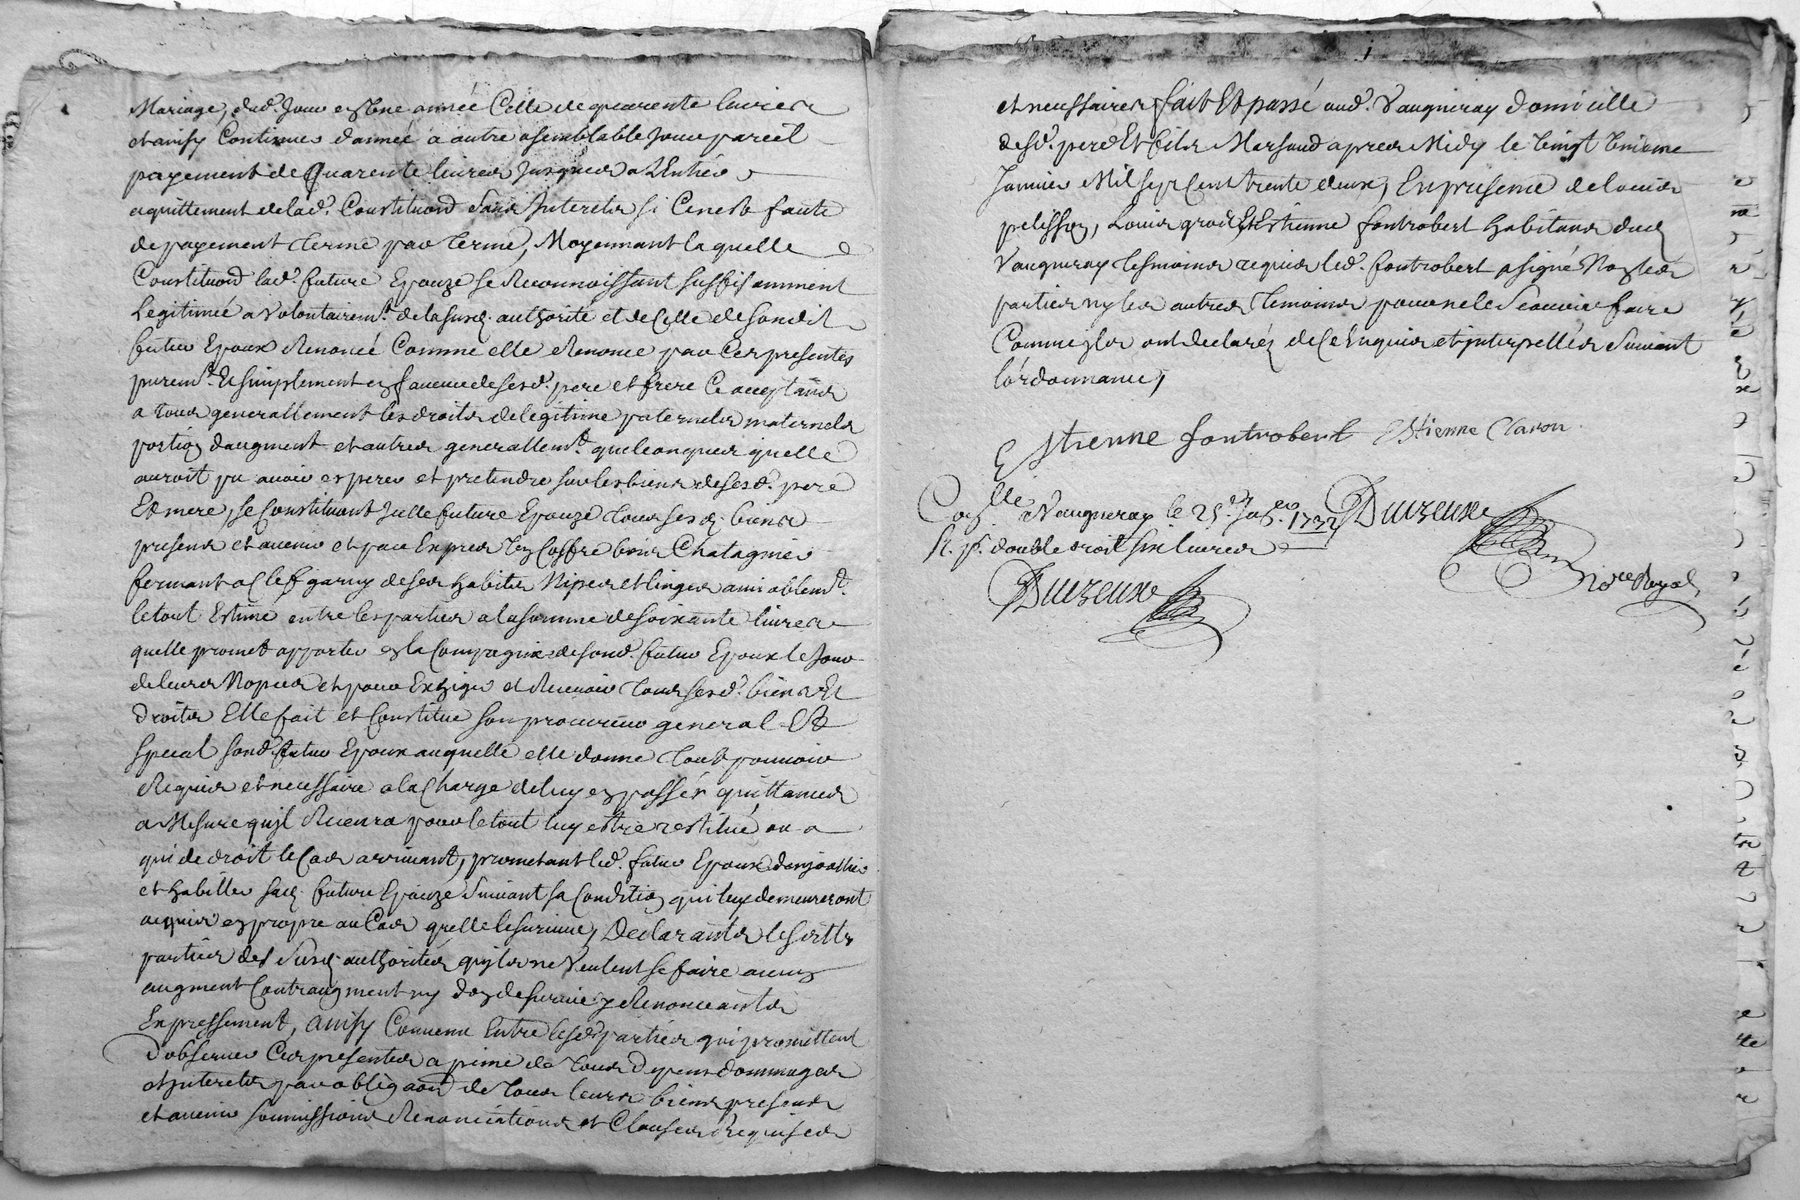 Mariage, dud. Jour en une année Celle de quarente livres
et ainsy Continuer d'année a autre a semblable Jour pareil
payement de Quarente livres Jusques a L'Entier
aquittement de lad. Constituon̄ sans Interets si Ce nest faute
de payement terme par terme, Moyennant laquelle
Constituon̄ lad. future Epouze se Reconnoissant suffisamment
Legitimée a volontairemt. de la susd. authorité et de Celle de sondit
futur Epoux Renoncé Comme elle Renonce par Ces presentes
puremt. Et simplement en faveur de sesd. pere et frere Ce acceptants
a tous generallement les droits de legitime paternels maternels
portion daugment et autres generallemt. quelconques quelle
auroit pu avoir esperer et pretendre sur les biens de sesd. pere
Et mere, se Constituant Jcelle future Epouze tous ses d. biens
presens et avenir et par Exprez Un Coffre bois Chatagnier
fermant a Clef garny de ses habits Nipes et linges amiablemt.
le tout Estimé entre les parties a la somme de soixante livres
quelle promet apporter en la Compagnie de sond. futur Epoux le Jour
de leurs Nopces et pour Exhiger et Recevoir tous sesd. biens Et
droits Elle fait et Constitue son procureur general Et
special sond. futur Epoux auquelle elle donne tout pouvoir
Requis et necessaire a la Charge de luy en passer quittances
a Mesure quil Recevra pour le tout luy estre restitué ou a
qui de droit le Cas arrivant, promettant led. futur Epoux denjoallier
et habiller sad. future Epouze suivant sa Condition qui luy demeureront
acquis en propre au Cas quelle le survive, Declarants lesdittes
parties des susd. authorités quils ne veulent se faire aucun
augment Contraugment ny don de survie y Renonceants
Expressement, Ainsy Convenu Entre lesd. parties qui promettent
d'observer Ces presentes a peine de tous depens dommages
et Interets par obligaon̄ de tous leurs biens presens
et avenir soumissions Renonciations et Clauses Requises
et necessaires fait Et passé aud. Vaugneray domicille
desd. pere Et fils Marsaud apres Midy le vingt unieme
Janvier Mil sept Cent trente deux, En presence de Louis
pelisson, Louis gros Et Estienne fontrobert habitans dud.
Vaugneray tesmoins requis led. fontrobert a signé Non les
parties ny les autres temoins pour ne le scavoir faire
Comme ils ont declaréz de Ce Enquis et interpellés suivant
lordonnance,
Estienne fontrobert Estienne Claron
Conlle. a Vaugneray le 25. Jaer. 1732 Duizeux
R. p. double droit six livres
Duizeux
Nore Royal